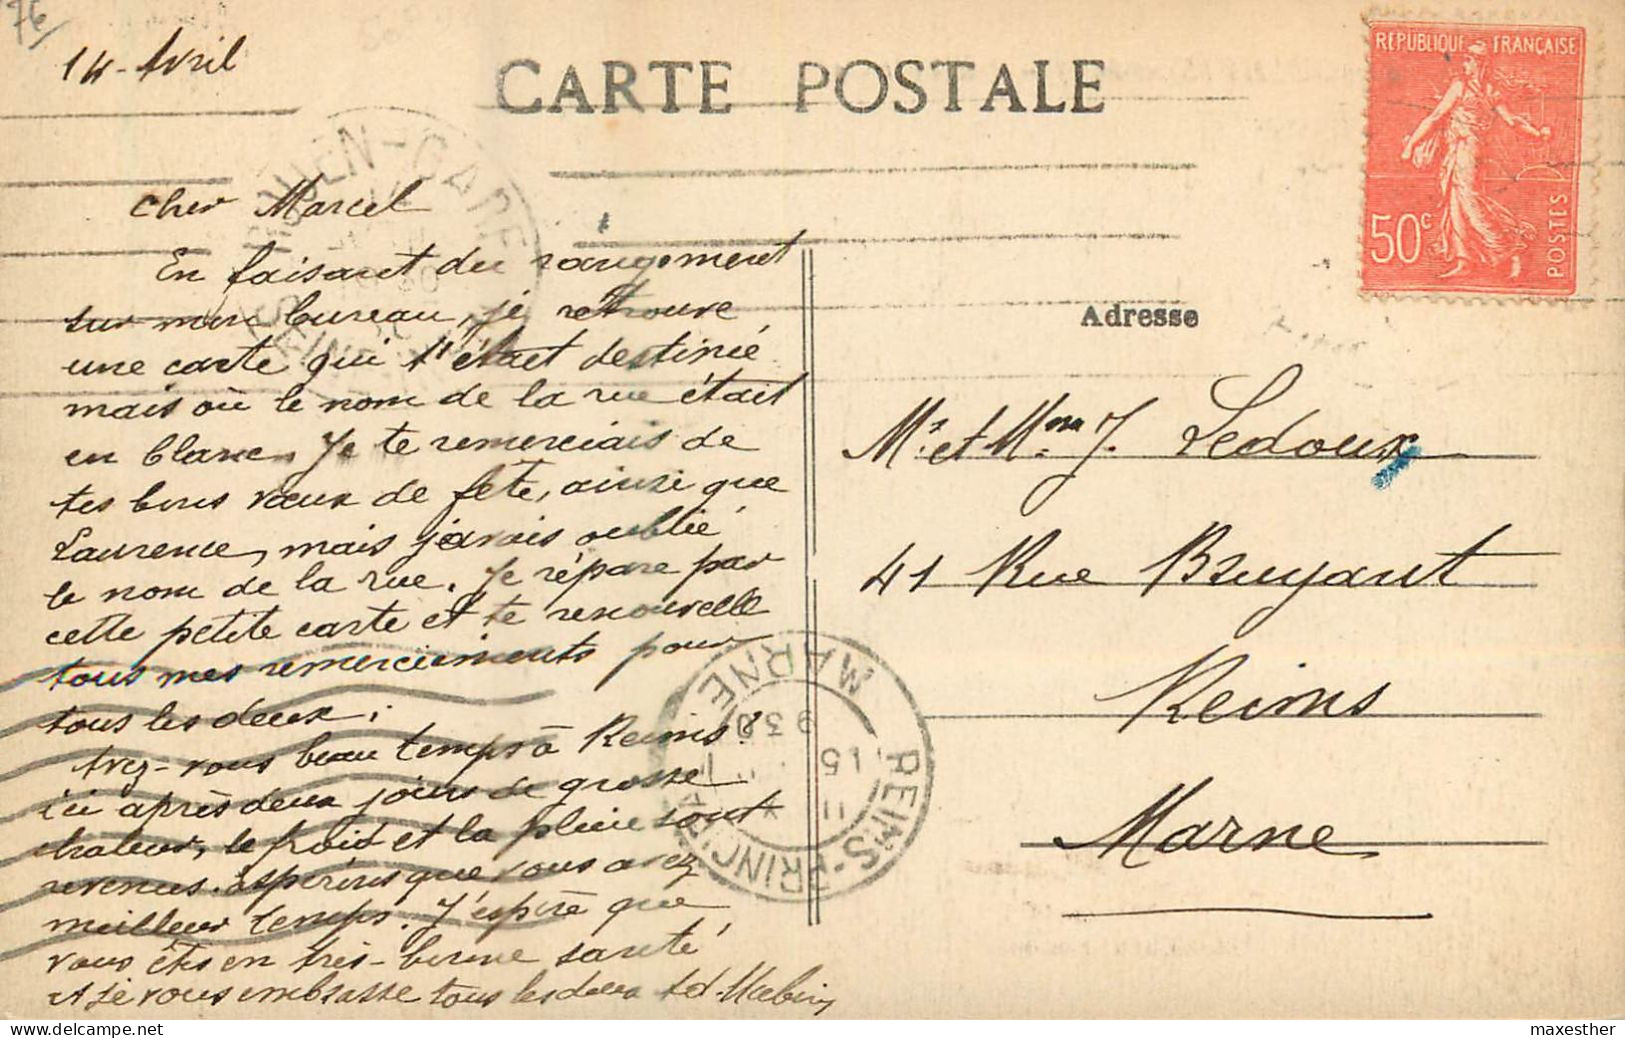 76
14 - Avril
CARTE POSTALE
REPUBLIQUE FRANÇAISE
50c
POSTES
ROUEN-GARE
Cher Marcel
En faisant du rangement
sur mon bureau, je retrouve
une carte qui t'était destinée
mais où le nom de la rue était
en blanc. Je te remerciais de
tes bons vœux de fête, ainsi que
Laurence, mais j'avais oublié
le nom de la rue. Je répare par
cette petite carte et te renouvelle
tous mes remerciements pour
tous les deux.
Avez-vous beau temps à Reims?
ici après deux jours de grosse
chaleur, le froid et la pluie sont
revenus. Espérons que vous avez
meilleur temps. J'espère que
vous êtes en très-bonne santé
et je vous embrasse tous les deux
Adresse
Mr. et Mme. J. Ledoux
41 Rue Bruyant
Reims
Marne
REIMS-PRINCIPAL
MARNE
9 30
15
maxesther